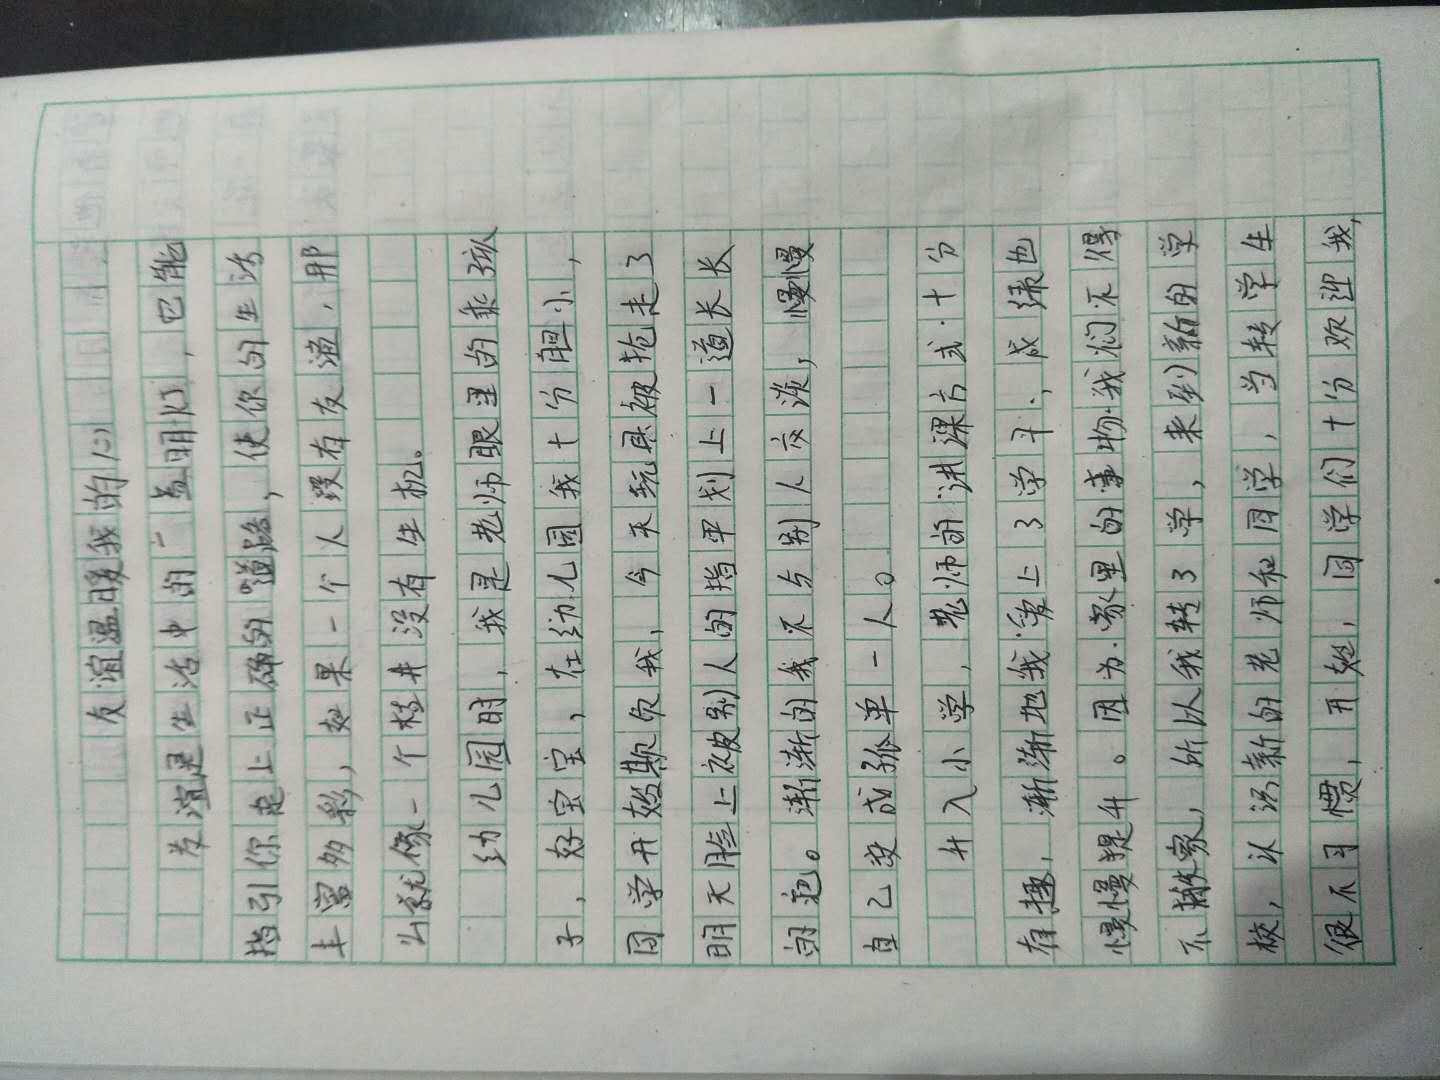 友谊温暖我的心
友谊是生活中的一盏明灯，它能
指引你走上正确的道路，使你的生活
丰富多彩，如果一个人没有友谊，那
么就像一个枯井没有生机。
幼儿园时，我是老师眼里的乖孩
子，好宝宝，在幼儿园我十分胆小，
同学开始欺负我，今天玩具被抢走了
明天脸上被别人的指甲划上一道长长
的疤。渐渐的我不与别人交谈，慢慢
自己变成孤单一人。
升入小学，老师的讲课方式十分
有趣，渐渐地我爱上了学习，成绩也
慢慢提升。因为家里的事物我们不得
不搬家，所以我转了学，来到新的学
校，认识新的老师和同学，当转学生
很不习惯，开始，同学们十分欢迎我，